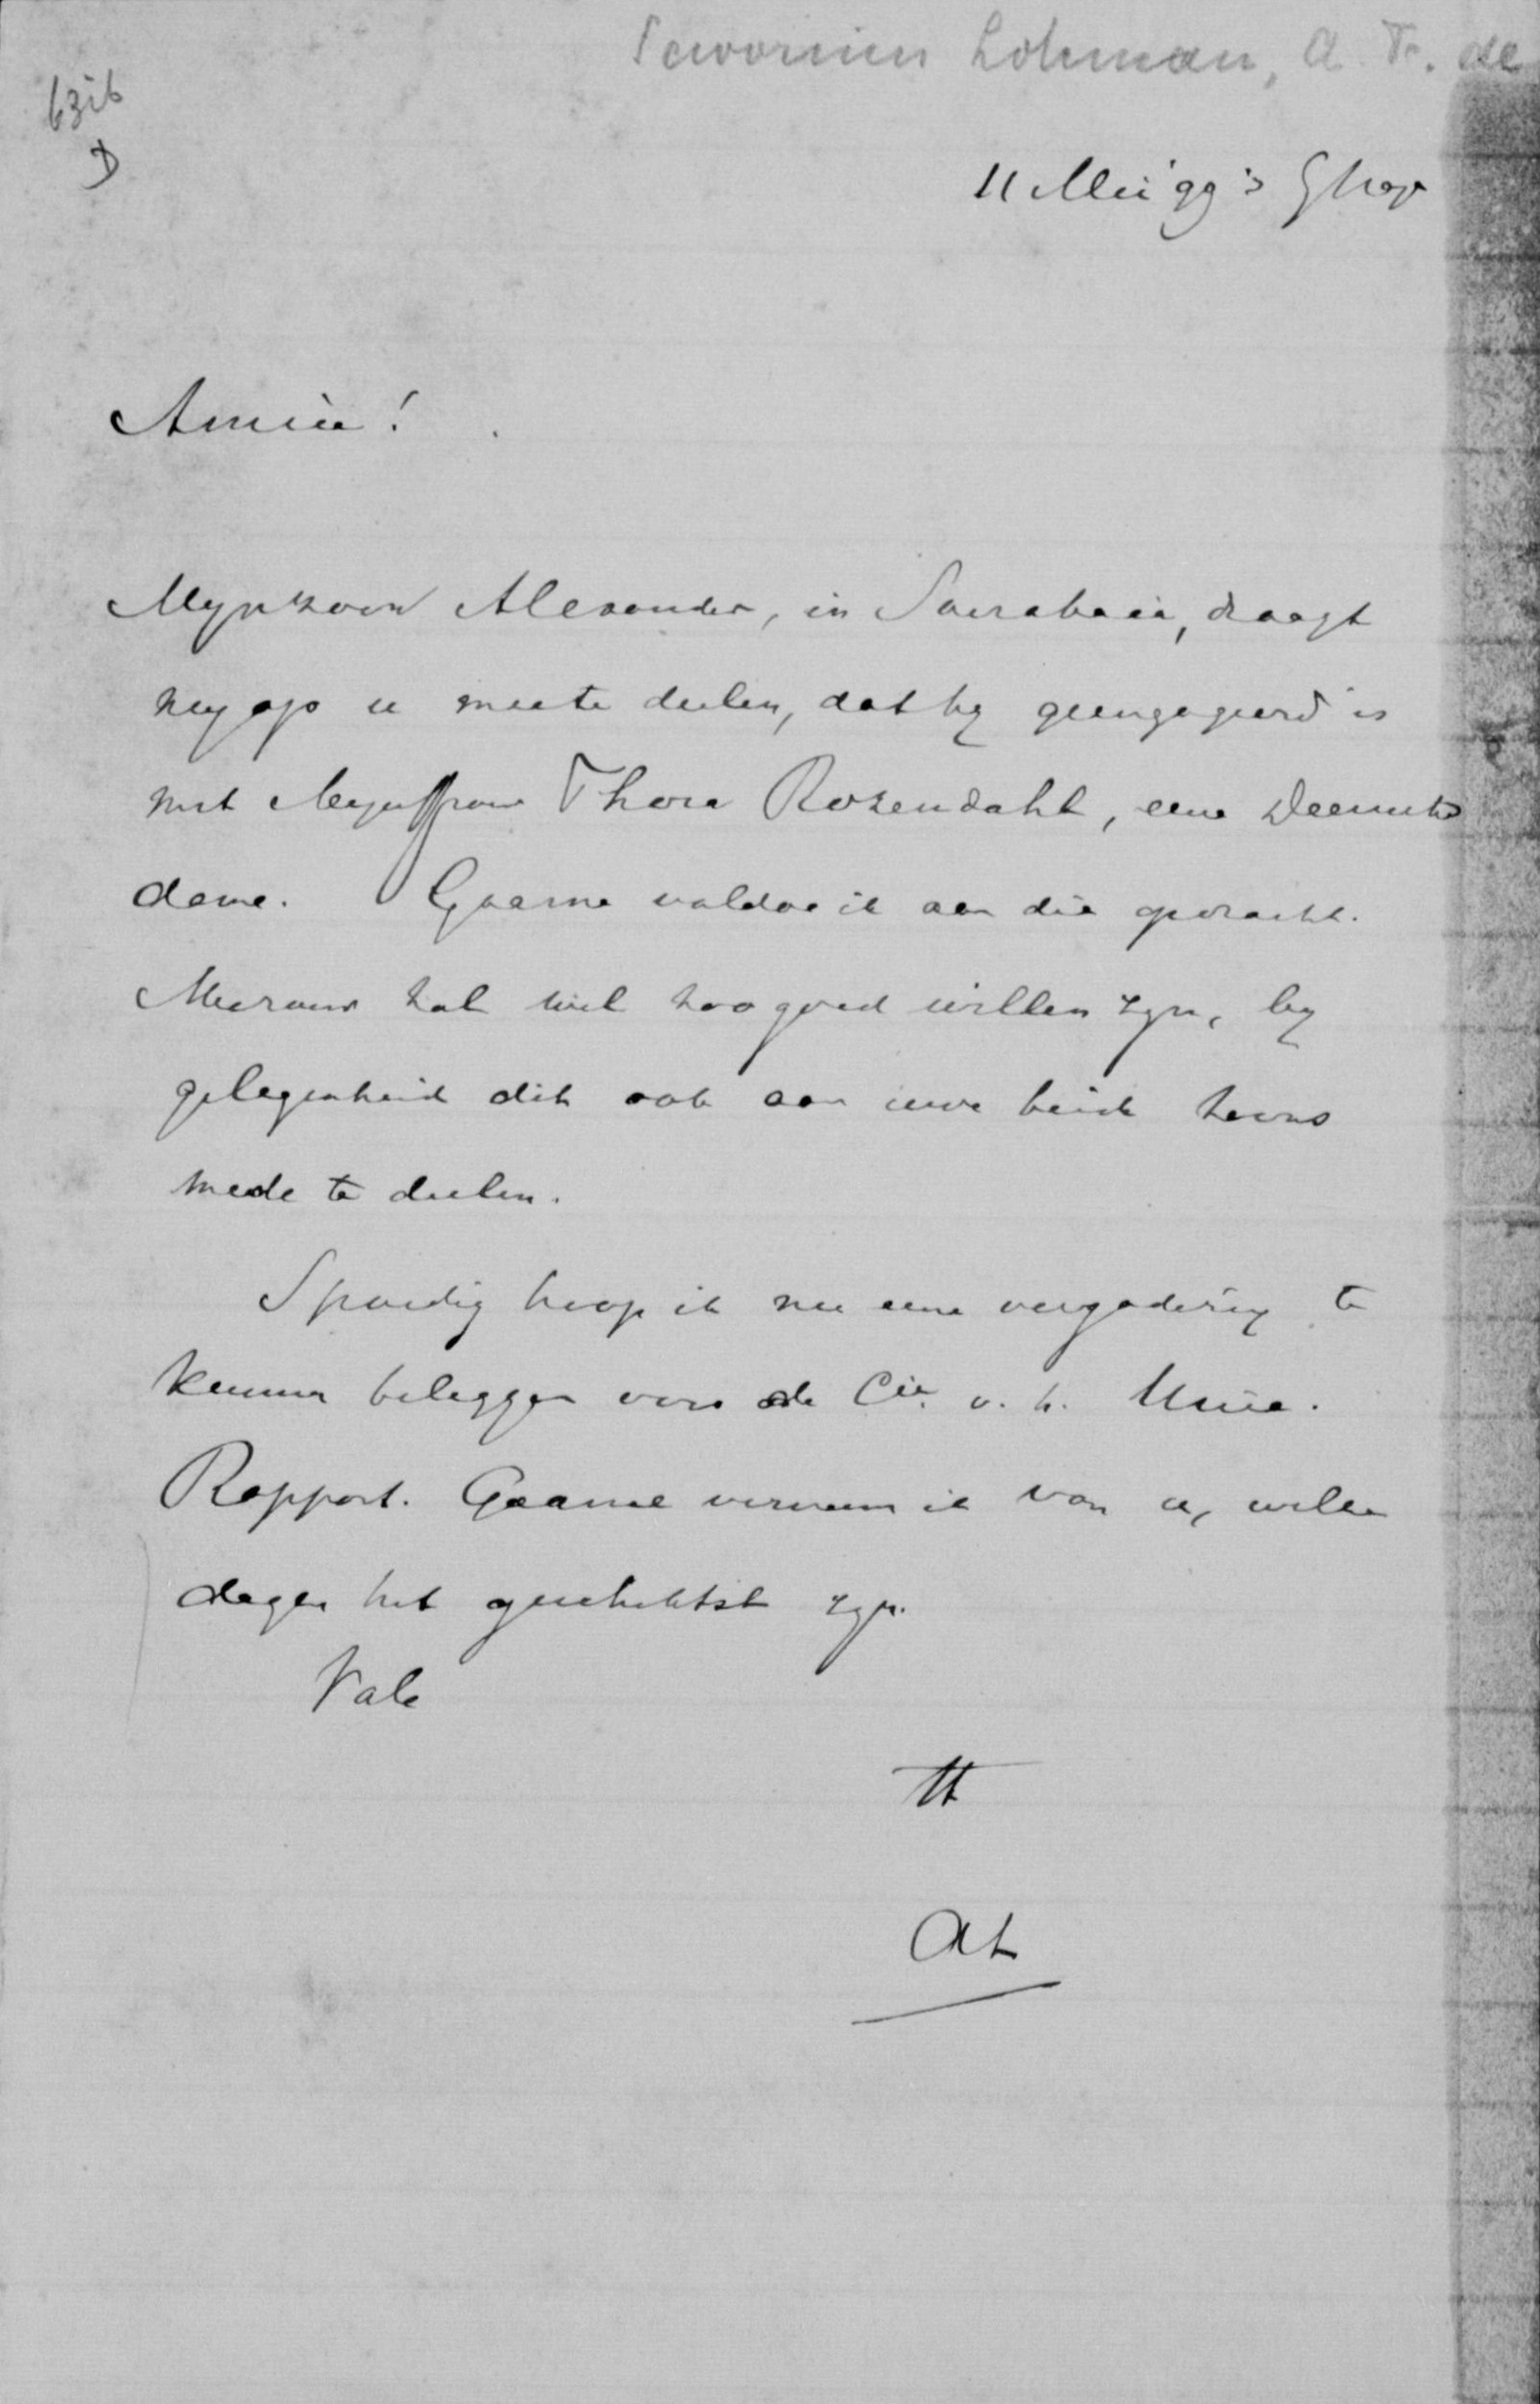 Savornin Lohman, A. F. de
6326
D
11 Mei '99 's Ghage
Amice!
Myn zoon Alexander, in Soerabaia, draagt
my op u mee te deelen, dat hy geengageerd is
met Mejuffrouw Thora Rosendahl, eene Deensche
dame. Gaarne voldoe ik aan die opdracht.
Mevrouw zal wel zoo goed willen zyn, by
gelegenheid dit ook aan uwe beide zoons
mede te deelen.
Spoedig hoop ik nu eene vergadering te
kunnen beleggen voor de Cie. v. h. Unie.
Rapport. Gaarne verneem ik van u, welke
dagen het geschiktst zyn.
Vale
tt
AL